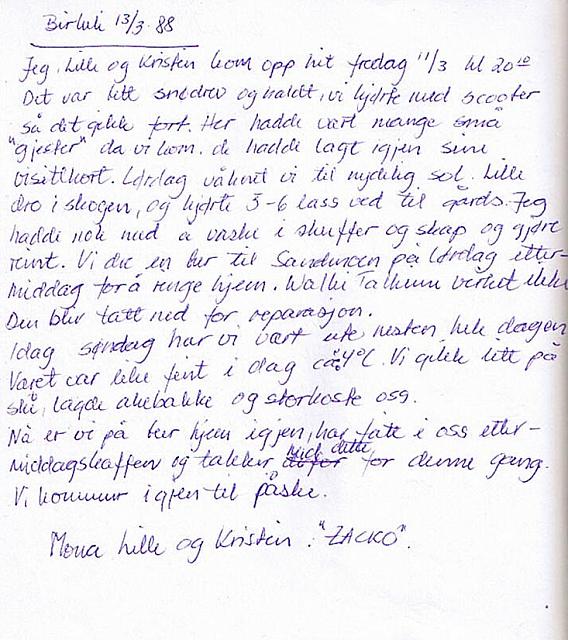 Birkeli 13/3-88
Jeg, Lille og Kristin kom opp hit fredag 11/3 kl 20 10
Det var litt snedrev og kaldt, vi kjørte med scooter
så det gikk fort. Her hadde vært mange små
"gjester" da vi kom. de hadde lagt igjen sine
visittkort. Lørdag våknet vi til nydelig sol. Lille
dro i skogen, og kjørte 5-6 lass ved til gårds. Jeg
hadde nok med å vaske i skuffer og skap og gjøre
rent. Vi dro en tur til Sandmoen på Lørdag etter-
middag for å ringe hjem. Walki Talkien virket ikke
Den blir tatt ned for reparasjon.
Idag søndag har vi vært ute nesten hele dagen
Været var like fint i dag ca. 4°C. Vi gikk litt på
ski, lagde akebakke og storkoste oss.
Nå er vi på tur hjem igjen, har fått i oss etter-
middagskaffen og takker Med dette for denne gang.
Vi kommer igjen til påske.
Mona Lille og Kristin. "ZACKO".